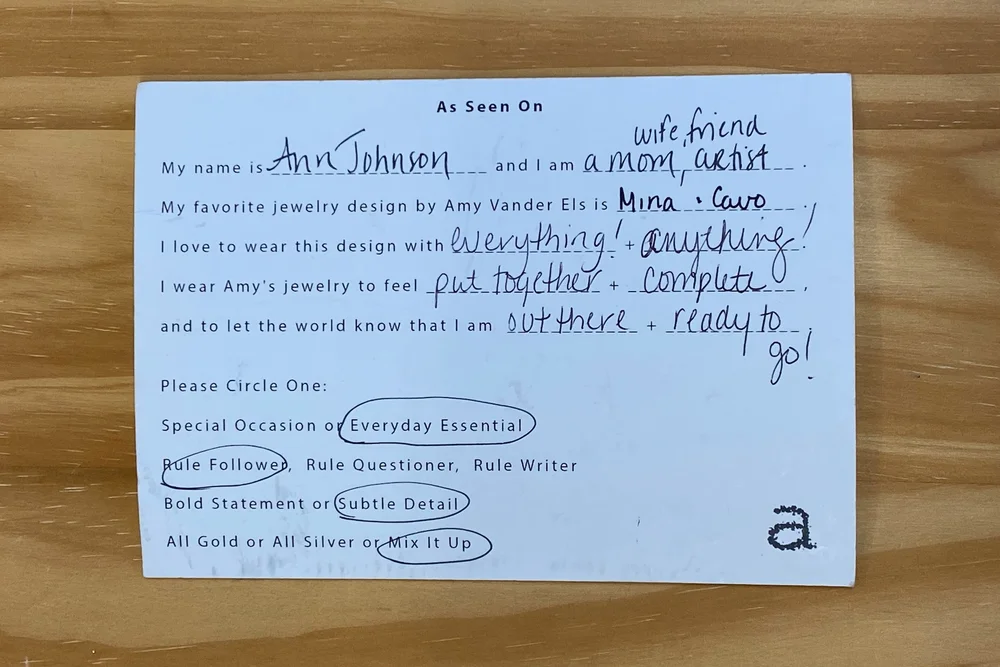 As Seen On
wife, friend
My name is Ann Johnson and I am a mom, artist.
My favorite jewelry design by Amy Vander Els is Mina · Cavo.
I love to wear this design with everything! + anything!
I wear Amy's jewelry to feel put together + complete,
and to let the world know that I am out there + ready to
go!
Please Circle One:
Special Occasion or Everyday Essential
Rule Follower, Rule Questioner, Rule Writer
Bold Statement or Subtle Detail
All Gold or All Silver or Mix It Up
a